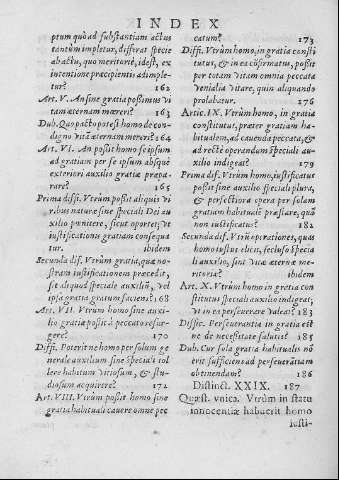 INDEX
ptum quò ad substantiam actus
tantùm impletur, differat specie
ab actu, quo meritoriè, idest, ex
intentione precipientis adimple-
tur? 162
Art. V. An sine gratia possimus vi
tam æternam mæreri? 163
Dub. Quo pacto potest homo de con-
digno vitã æternam mereri? 164
Art. VI. An possit homo se ipsum
ad gratiam per se ipsum absque
exteriori auxilio gratiæ præpa-
rare? 165
Prima diffi. Vtrùm possit aliquis vi
ribus naturæ sine speciali Dei au
xilio pœnitere, sicut oportet; vt
iustificationis gratiam consequa-
tur. ibidem
Secunda dif. Vtrùm gratia, quæ no-
stram iustificationem præcedit,
sit aliquod speciale auxiliũ, vel
ipsa gratia gratum faciens? 168
Art. VII. Vtrum homo sine auxi-
lio gratia possit à peccato resur-
gere? 170
Diffi. Poterit ne homo per solum ge
nerale auxilium sine speciali tol
lere habitum vitiosum, & stu-
diosum acquirere? 172
Art. VIII. Vtrùm possit homo sine
gratia habituali cauere omne pec
catum? 173
Diffi. Vtrùm homo, in gratia consti
tutus, & in ea cõfirmatus, possit
per totam vitam omnia peccata
venialia vitare, quin aliquando
prolabatur. 176
Artic. IX. Vtrùm homo, in gratia
constitutus, præter gratiam ha-
bitualem, ad cauenda peccata, &
ad rectè operandum speciali au-
xilio indigeat? 179
Prima dif. Vtrùm homo, iustificatus
possit sine auxilio speciali plura,
& perfectiora opera per solam
gratiam habitualẽ præstare, quã
non iustificatus? 182
Secunda dif. Vtrũ operationes, quas
homo iustus elicit, secluso specia
li auxilio, sint vitæ æternæ me-
ritoriæ? ibidem
Art. X. Vtrùm homo in gratia con
stitutus speciali auxilio indigeat,
vt in ea perseuerare valeat? 183
Diffic. Perseuerantia in gratia est
ne de necessitate salutis? 185
Dub. Cur sola gratia habitualis nõ
erit sufficiens ad perseuerãtiam
obtinendam? 186
Distinct. XXIX. 187
Quæst. vnica. Vtrùm in statu
innocentiæ habuerit homo
iusti-